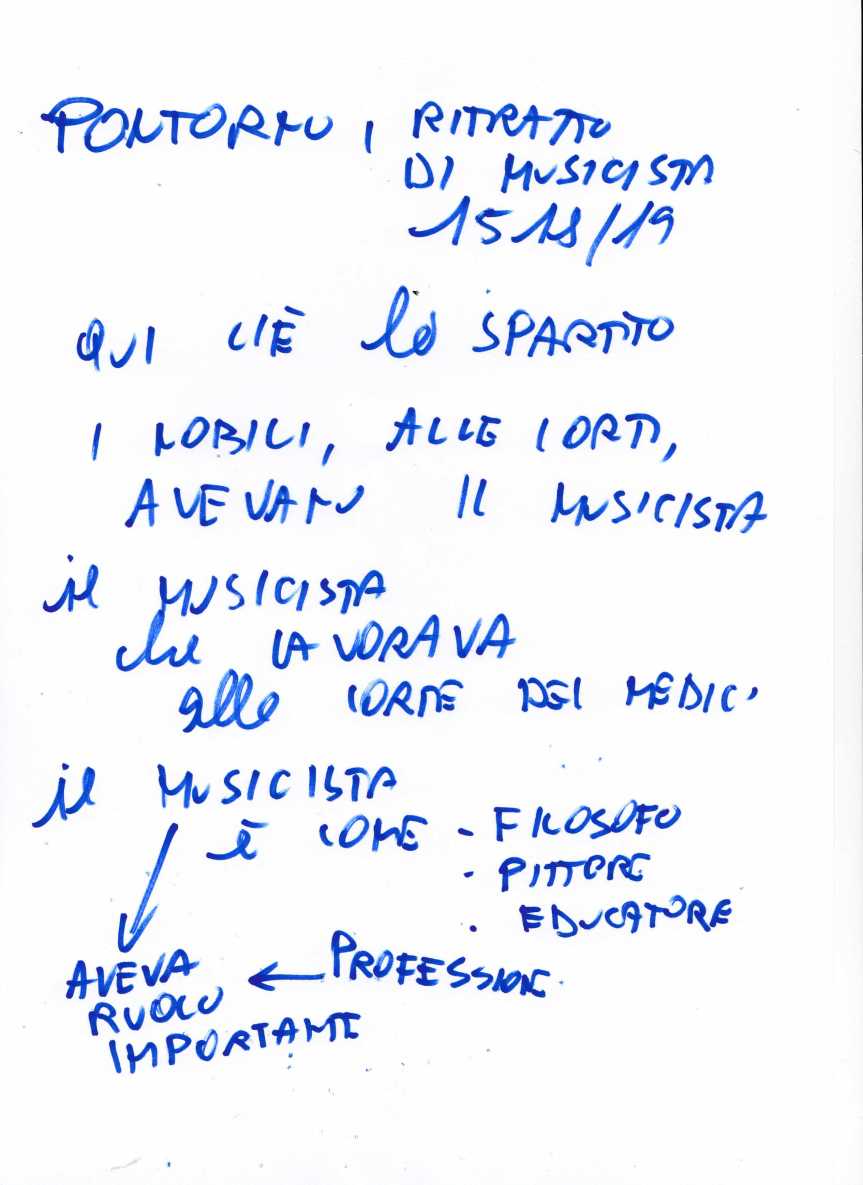 PONTORMO, RITRATTO
DI MUSICISTA
1518/19
QUI C'È lo SPARTITO
I NOBILI, ALLE CORTI,
AVEVANO IL MUSICISTA
il MUSICISTA
che LAVORAVA
alla CORTE DEI MEDICI
il MUSICISTA
è COME - FILOSOFO
- PITTORE
- EDUCATORE
AVEVA ← PROFESSIONE
RUOLO
IMPORTANTE